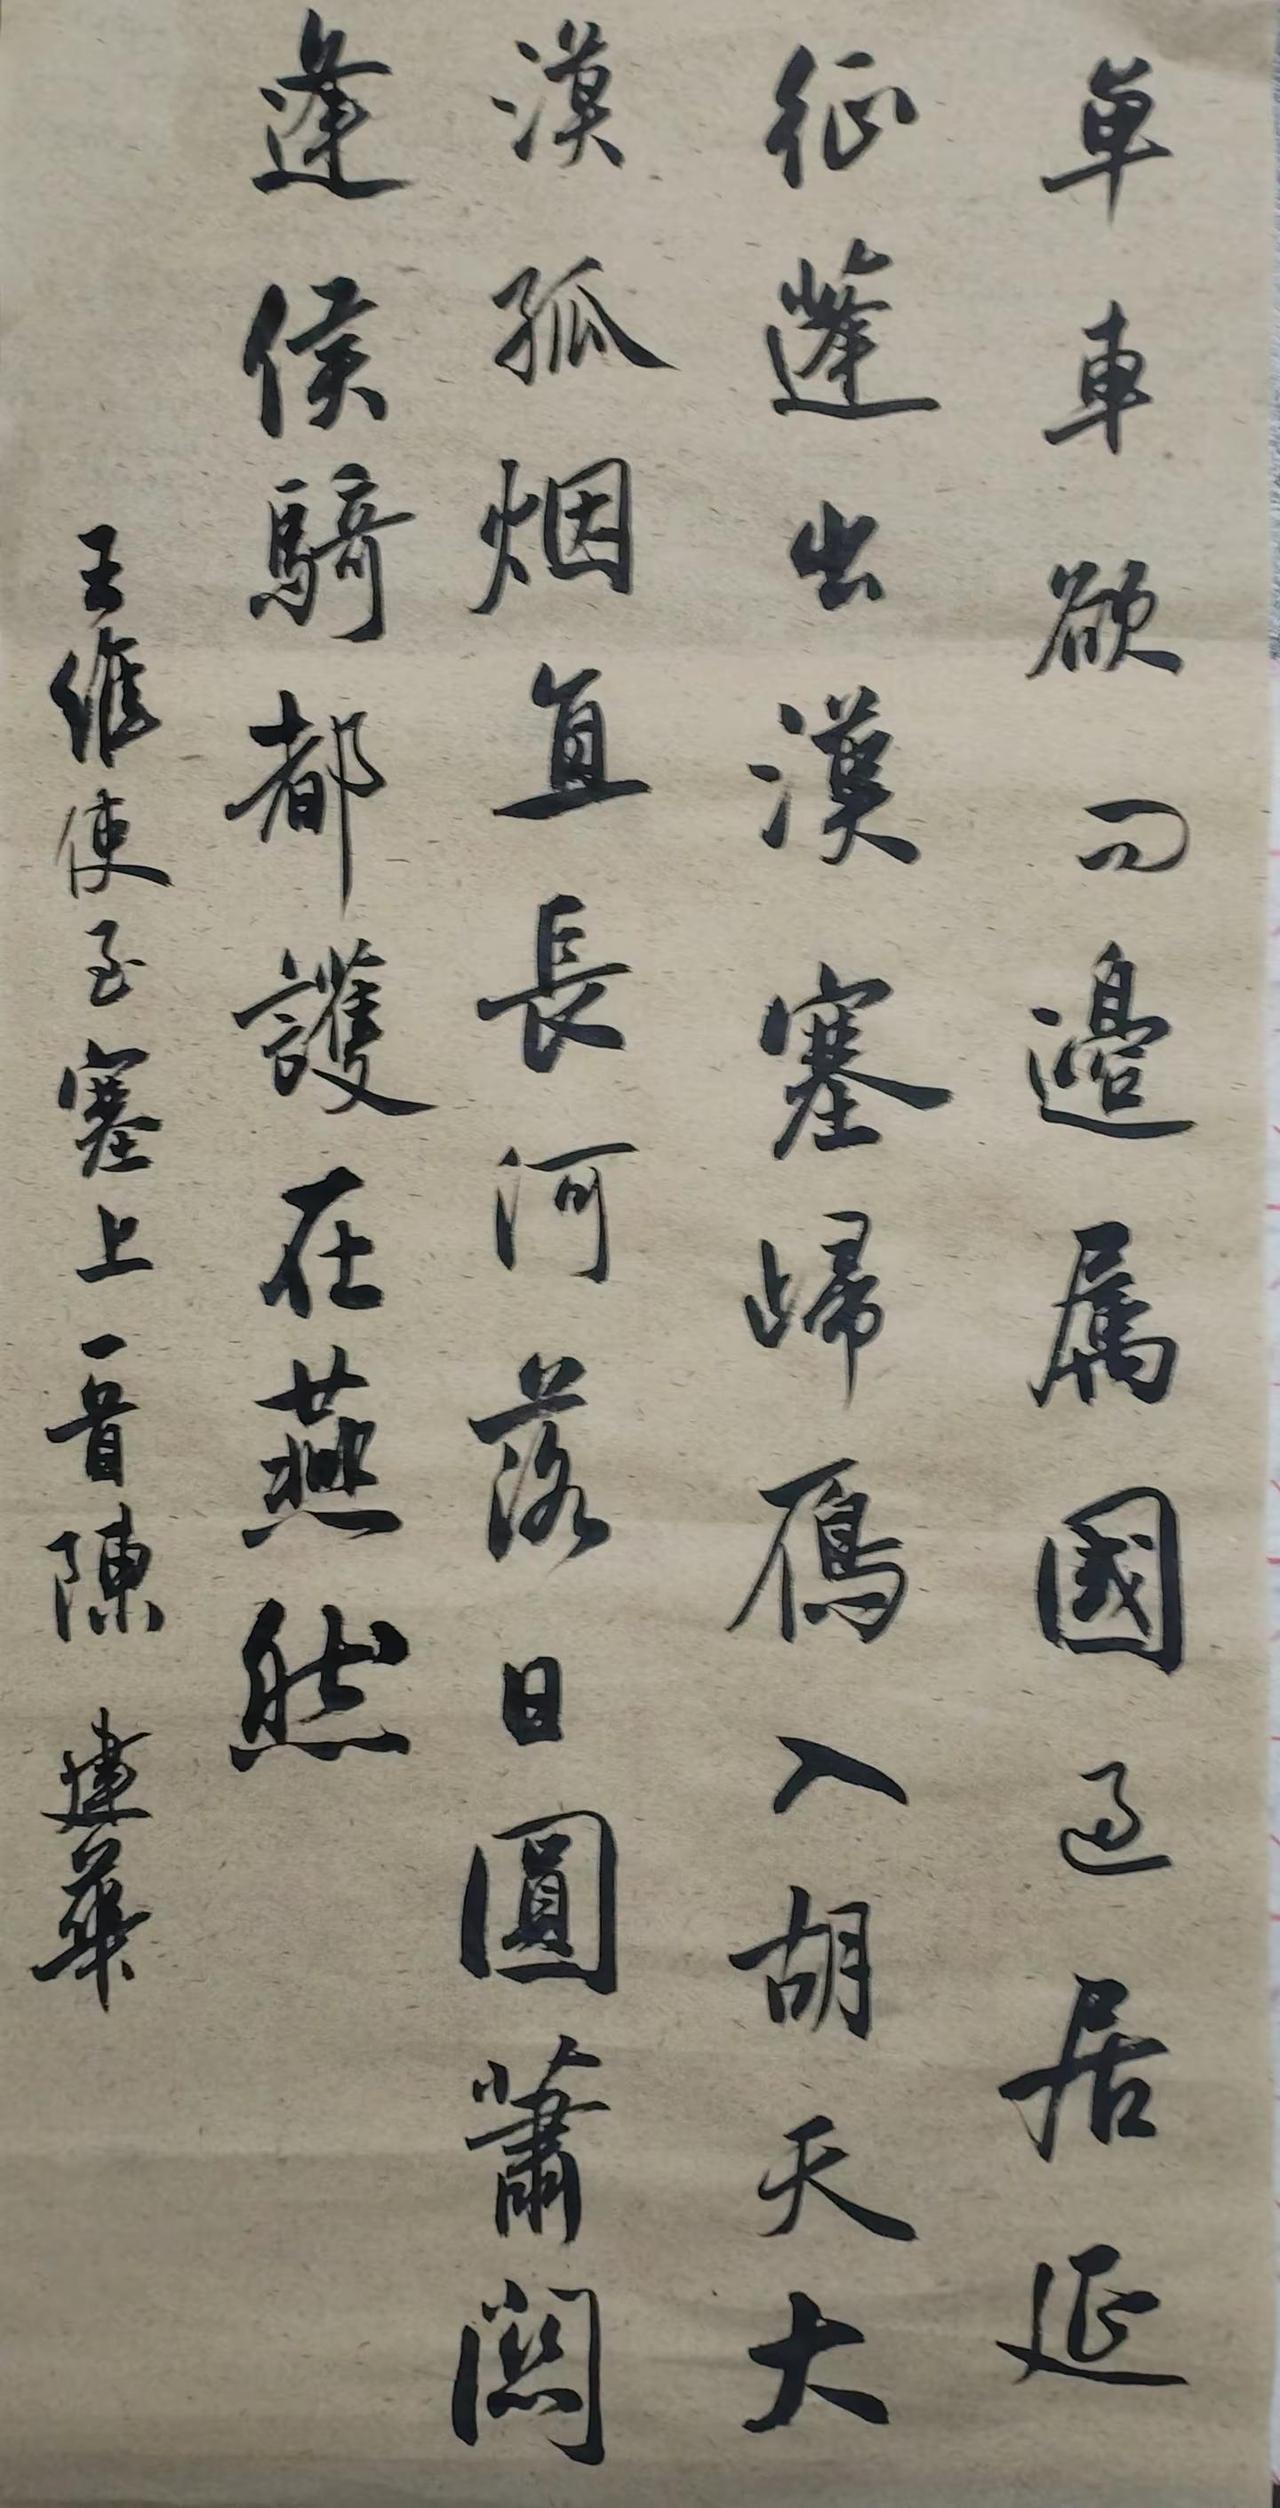 單車欲問邊属國過居延
征蓬出漢塞歸鴈入胡天大
漠孤烟直長河落日圓蕭關
逢侯騎都護在燕然
王維使至塞上一首陳建華